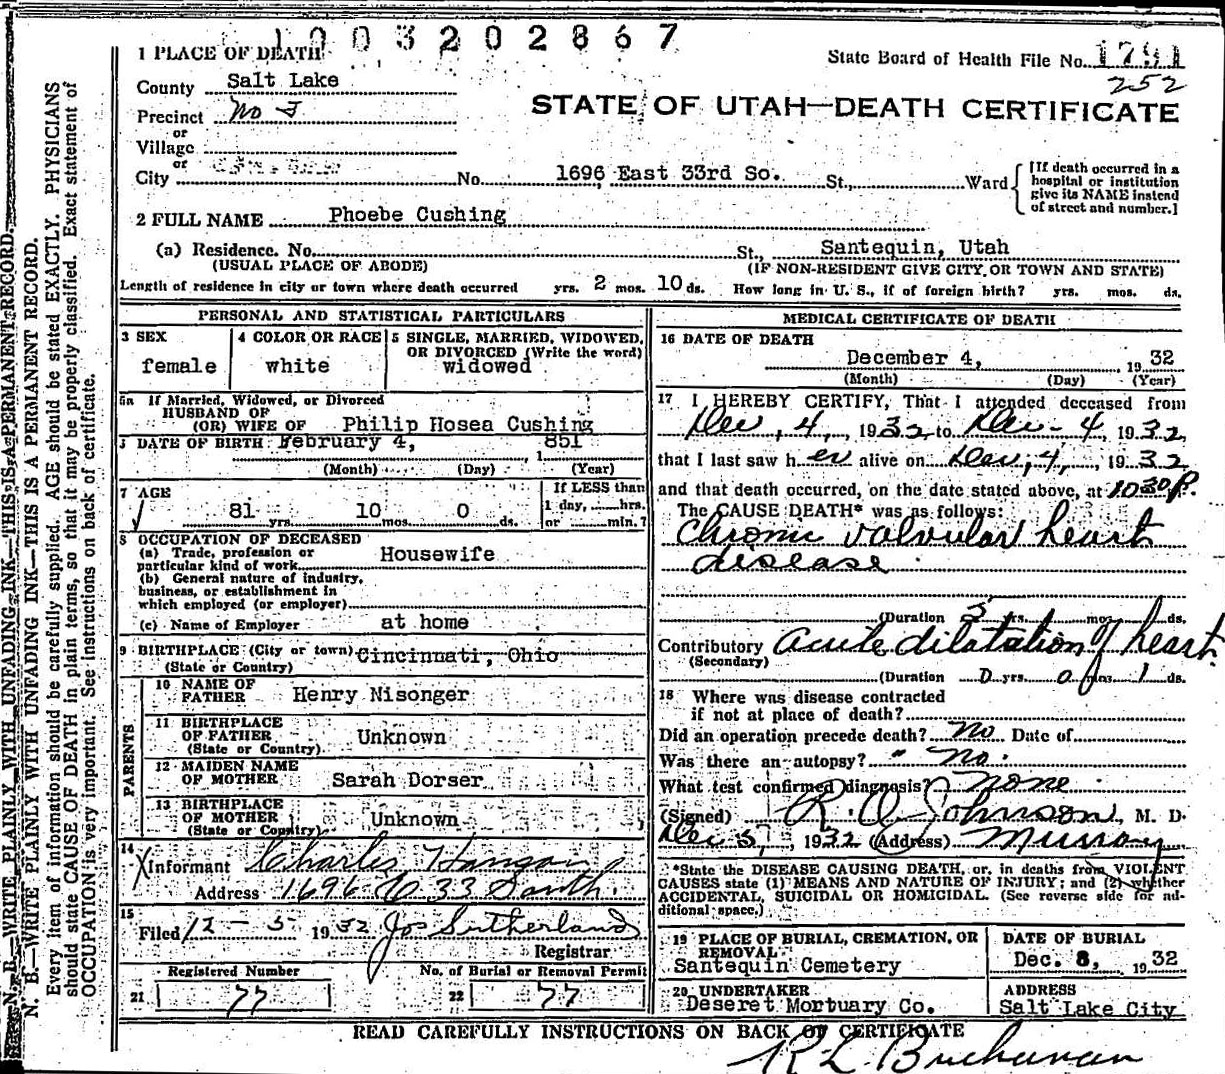 1003202867
1 PLACE OF DEATH
State Board of Health File No. 1791
252
County Salt Lake
STATE OF UTAH—DEATH CERTIFICATE
Precinct No 3
or
Village
or
City No. 1696 East 33rd So. St., Ward
[If death occurred in a hospital or institution give its NAME instead of street and number.]
2 FULL NAME Phoebe Cushing
(a) Residence. No. St., Santequin, Utah
(USUAL PLACE OF ABODE) (IF NON-RESIDENT GIVE CITY OR TOWN AND STATE)
Length of residence in city or town where death occurred yrs. 2 mos. 10 ds. How long in U. S., if of foreign birth? yrs. mos. ds.
PERSONAL AND STATISTICAL PARTICULARS
3 SEX
female
4 COLOR OR RACE
white
5 SINGLE, MARRIED, WIDOWED, OR DIVORCED (Write the word)
widowed
5a If Married, Widowed, or Divorced
HUSBAND OF
(OR) WIFE OF Philip Hosea Cushing
DATE OF BIRTH February 4, 1851
(Month) (Day) (Year)
7 AGE
81 yrs. 10 mos. 0 ds.
If LESS than
1 day, hrs.
or min.?
8 OCCUPATION OF DECEASED
(a) Trade, profession or
particular kind of work Housewife
(b) General nature of industry,
business, or establishment in
which employed (or employer)
(c) Name of Employer at home
9 BIRTHPLACE (City or town) Cincinnati, Ohio
(State or Country)
PARENTS
10 NAME OF
FATHER Henry Nisonger
11 BIRTHPLACE
OF FATHER Unknown
(State or Country)
12 MAIDEN NAME
OF MOTHER Sarah Dorser
13 BIRTHPLACE
OF MOTHER Unknown
(State or Country)
14
Informant Charles
Address 1696 E 33 South.
15
Filed 12-5 1932 Jos Sutherland
Registrar
Registered Number
21 77
No. of Burial or Removal Permit
22 77
MEDICAL CERTIFICATE OF DEATH
16 DATE OF DEATH
December 4, 1932
(Month) (Day) (Year)
17 I HEREBY CERTIFY, That I attended deceased from
Dec, 4, 1932 to Dec-4, 1932
that I last saw her alive on Dec, 4, 1932
and that death occurred, on the date stated above, at 1030 P.
The CAUSE DEATH* was as follows:
Chronic valvular heart
disease
(Duration 5 yrs. mos. ds.
Contributory acute dilatation of heart.
(Secondary)
(Duration 0 yrs. 0 mos. 1 ds.
18 Where was disease contracted
if not at place of death?
Did an operation precede death? No Date of
Was there an autopsy? " No.
What test confirmed diagnosis? none
(Signed) R. O. Johnson, M. D.
Dec 5, 1932 (Address) Murray
*State the DISEASE CAUSING DEATH, or, in deaths from VIOLENT
CAUSES state (1) MEANS AND NATURE OF INJURY; and (2) whether
ACCIDENTAL, SUICIDAL OR HOMICIDAL. (See reverse side for ad-
ditional space.)
19 PLACE OF BURIAL, CREMATION, OR
REMOVAL
Santequin Cemetery
DATE OF BURIAL
Dec. 8, 1932
20 UNDERTAKER
Deseret Mortuary Co.
ADDRESS
Salt Lake City
READ CAREFULLY INSTRUCTIONS ON BACK OF CERTIFICATE
R L Buchanan
N. B.—WRITE PLAINLY WITH UNFADING INK—THIS IS A PERMANENT RECORD.
N. B.—WRITE PLAINLY WITH UNFADING INK—THIS IS A PERMANENT RECORD.
Every item of information should be carefully supplied. AGE should be stated EXACTLY. PHYSICIANS
should state CAUSE OF DEATH in plain terms, so that it may be properly classified. Exact statement of
OCCUPATION is very important. See instructions on back of certificate.